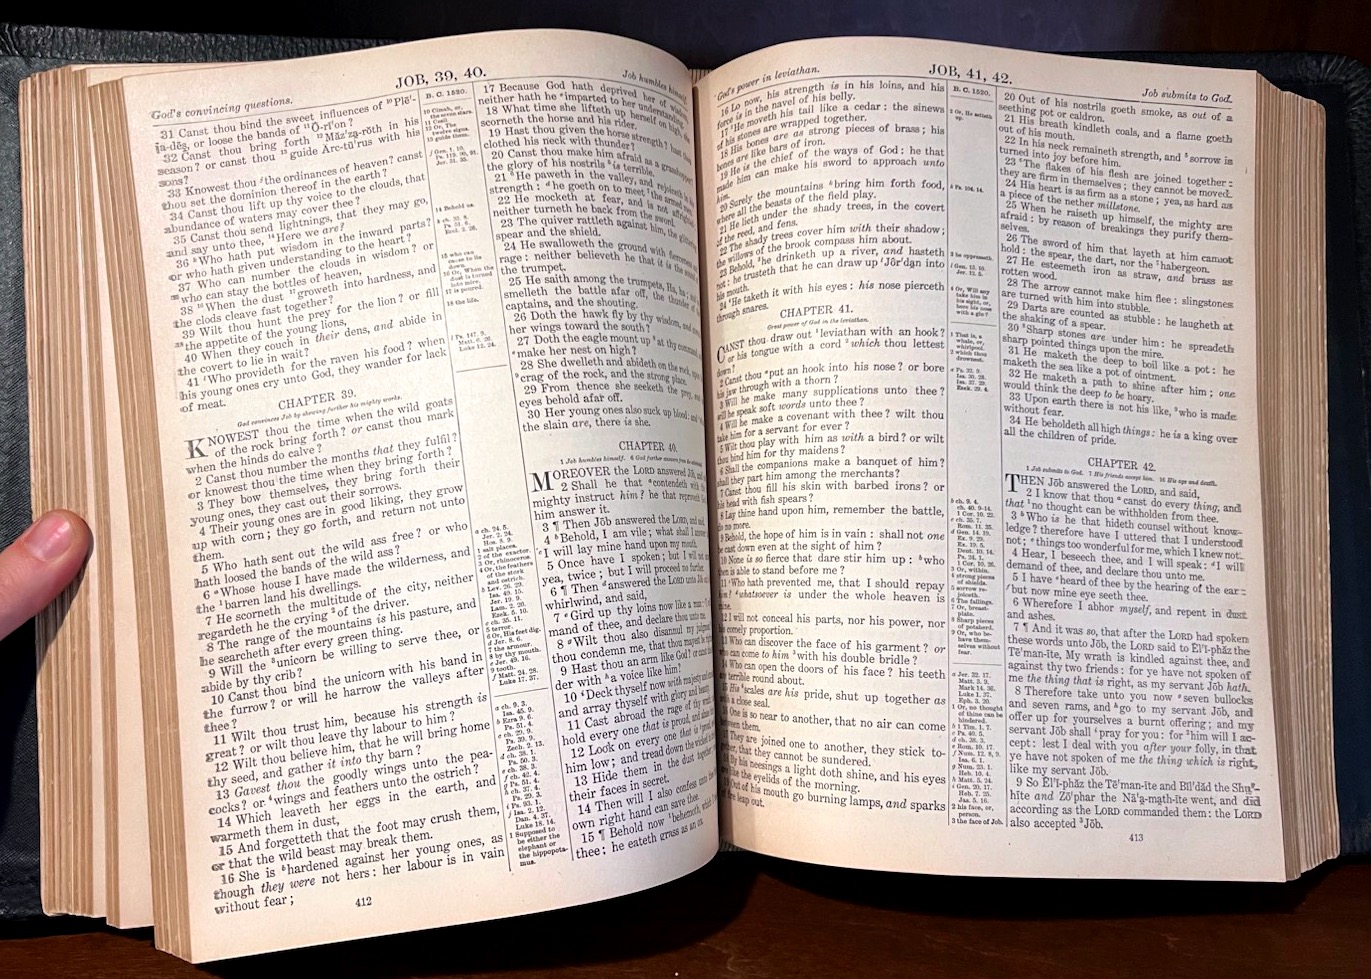 JOB, 39, 40.
God's convincing questions.
Job humbles himself.
31 Canst thou bind the sweet influences of 10 Plē'-
ja-dēs, or loose the bands of 11 Ō-rī'on?
32 Canst thou bring forth 12 Măz'za-rŏth in his
season? or canst thou 13 guide Arc-tū'rus with his
sons?
33 Knowest thou f the ordinances of heaven? canst
thou set the dominion thereof in the earth?
34 Canst thou lift up thy voice to the clouds, that
abundance of waters may cover thee?
35 Canst thou send lightnings, that they may go,
and say unto thee, 14 Here we are?
36 h Who hath put wisdom in the inward parts?
or who hath given understanding to the heart?
37 Who can number the clouds in wisdom? or
who can stay the bottles of heaven,
38 16 When the dust 17 groweth into hardness, and
the clods cleave fast together?
39 Wilt thou hunt the prey for the lion? or fill
the appetite of the young lions,
40 When they couch in their dens, and abide in
the covert to lie in wait?
41 i Who provideth for the raven his food? when
his young ones cry unto God, they wander for lack
of meat.
CHAPTER 39.
God convinces Job by shewing further his mighty works.
KNOWEST thou the time when the wild goats
of the rock bring forth? or canst thou mark
when the hinds do calve?
2 Canst thou number the months that they fulfil?
or knowest thou the time when they bring forth?
3 They bow themselves, they bring forth their
young ones, they cast out their sorrows.
4 Their young ones are in good liking, they grow
up with corn; they go forth, and return not unto
them.
5 Who hath sent out the wild ass free? or who
hath loosed the bands of the wild ass?
6 a Whose house I have made the wilderness, and
the 1 barren land his dwellings.
7 He scorneth the multitude of the city, neither
regardeth he the crying 2 of the driver.
8 The range of the mountains is his pasture, and
he searcheth after every green thing.
9 Will the 3 unicorn be willing to serve thee, or
abide by thy crib?
10 Canst thou bind the unicorn with his band in
the furrow? or will he harrow the valleys after
thee?
11 Wilt thou trust him, because his strength is
great? or wilt thou leave thy labour to him?
12 Wilt thou believe him, that he will bring home
thy seed, and gather it into thy barn?
13 Gavest thou the goodly wings unto the pea-
cocks? or 4 wings and feathers unto the ostrich?
14 Which leaveth her eggs in the earth, and
warmeth them in dust,
15 And forgetteth that the foot may crush them,
or that the wild beast may break them.
16 She is b hardened against her young ones, as
though they were not hers: her labour is in vain
without fear;
B. C. 1520.
10 Cimah, or,
the seven stars.
11 Cesil
12 Or, The
twelve signs.
13 guide them.
14 Behold us.
16 Or, When the
dust is turned
into mire.
17 is poured.
18 the life.
i Ps. 147. 9.
Matt. 6. 26.
Luke 12. 24.
a ch. 24. 5.
Jer. 2. 24.
Hos. 8. 9.
1 salt places.
2 of the exactor.
3 Or, rhinoceros.
4 Or, the feathers
of the stork
and ostrich.
5 terror.
6 Or, His feet dig.
7 the armour.
8 by thy mouth.
e Jer. 49. 16.
9 tooth.
f Matt. 24. 28.
Luke 17. 37.
1 Supposed to
be either the
elephant or
the hippopota-
mus.
17 Because God hath deprived her of wisdom,
neither hath he c imparted to her understanding.
18 What time she lifteth up herself on high, she
scorneth the horse and his rider.
19 Hast thou given the horse strength? hast thou
clothed his neck with thunder?
20 Canst thou make him afraid as a grasshopper?
the glory of his nostrils 5 is terrible.
21 6 He paweth in the valley, and rejoiceth in his
strength: d he goeth on to meet 7 the armed men.
22 He mocketh at fear, and is not affrighted;
neither turneth he back from the sword.
23 The quiver rattleth against him, the glittering
spear and the shield.
24 He swalloweth the ground with fierceness and
rage: neither believeth he that it is the sound of
the trumpet.
25 He saith among the trumpets, Ha, ha; and he
smelleth the battle afar off, the thunder of the
captains, and the shouting.
26 Doth the hawk fly by thy wisdom, and stretch
her wings toward the south?
27 Doth the eagle mount up 8 at thy command, and
e make her nest on high?
28 She dwelleth and abideth on the rock, upon the
9 crag of the rock, and the strong place.
29 From thence she seeketh the prey, and her
eyes behold afar off.
30 Her young ones also suck up blood: and f where
the slain are, there is she.
CHAPTER 40.
1 Job humbles himself.
MOREOVER the LORD answered Jōb, and said,
2 Shall he that a contendeth with the Almighty
mighty instruct him? he that reproveth God, let
him answer it.
3 ¶ Then Jōb answered the LORD, and said,
4 b Behold, I am vile; what shall I answer thee?
c I will lay mine hand upon my mouth.
5 Once have I spoken; but I will not answer:
yea, twice; but I will proceed no further.
6 ¶ Then d answered the LORD unto Jōb out of the
whirlwind, and said,
7 e Gird up thy loins now like a man: I will de-
mand of thee, and declare thou unto me.
8 g Wilt thou also disannul my judgment? wilt
thou condemn me, that thou mayest be righteous?
9 Hast thou an arm like God? or canst thou thun-
der with h a voice like him?
10 i Deck thyself now with majesty and excellency;
and array thyself with glory and beauty.
11 Cast abroad the rage of thy wrath: and be-
hold every one that is proud, and abase him.
12 Look on every one that is proud, and bring
him low; and tread down the wicked in their place.
13 Hide them in the dust together; and bind
their faces in secret.
14 Then will I also confess unto thee that thine
own right hand can save thee.
15 ¶ Behold now 1 behemoth, which I made with
thee; he eateth grass as an ox.
412
JOB, 41, 42.
God's power in leviathan.
Job submits to God.
16 Lo now, his strength is in his loins, and his
force is in the navel of his belly.
17 2 He moveth his tail like a cedar: the sinews
of his stones are wrapped together.
18 His bones are as strong pieces of brass; his
bones are like bars of iron.
19 He is the chief of the ways of God: he that
made him can make his sword to approach unto
him.
20 Surely the mountains k bring him forth food,
where all the beasts of the field play.
21 He lieth under the shady trees, in the covert
of the reed, and fens.
22 The shady trees cover him with their shadow;
the willows of the brook compass him about.
23 Behold, 3 he drinketh up a river, and hasteth
not: he trusteth that he can draw up l Jôr'dan into
his mouth.
24 4 He taketh it with his eyes: his nose pierceth
through snares.
CHAPTER 41.
Great power of God in the leviathan.
CANST thou draw out 1 leviathan with an hook?
or his tongue with a cord 2 which thou lettest
down?
2 Canst thou a put an hook into his nose? or bore
his jaw through with a thorn?
3 Will he make many supplications unto thee?
will he speak soft words unto thee?
4 Will he make a covenant with thee? wilt thou
take him for a servant for ever?
5 Wilt thou play with him as with a bird? or wilt
thou bind him for thy maidens?
6 Shall the companions make a banquet of him?
shall they part him among the merchants?
7 Canst thou fill his skin with barbed irons? or
his head with fish spears?
8 Lay thine hand upon him, remember the battle,
do no more.
9 Behold, the hope of him is in vain: shall not one
be cast down even at the sight of him?
10 None is so fierce that dare stir him up: b who
then is able to stand before me?
11 c Who hath prevented me, that I should repay
him? d whatsoever is under the whole heaven is
mine.
12 I will not conceal his parts, nor his power, nor
his comely proportion.
13 Who can discover the face of his garment? or
who can come to him 3 with his double bridle?
14 Who can open the doors of his face? his teeth
are terrible round about.
15 His 4 scales are his pride, shut up together as
with a close seal.
16 One is so near to another, that no air can come
between them.
17 They are joined one to another, they stick to-
gether, that they cannot be sundered.
18 By his neesings a light doth shine, and his eyes
are like the eyelids of the morning.
19 Out of his mouth go burning lamps, and sparks
of fire leap out.
B. C. 1520.
2 Or, He setteth
up.
k Ps. 104. 14.
3 he oppresseth.
4 Or, Will any
take him in
his sight, or,
bore his nose
with a gin?
1 That is a
whale, or,
whirlpool.
2 which thou
drownest.
b ch. 9. 4.
3 Or, within.
4 strong pieces
of shields.
5 sorrow re-
joiceth.
6 The fallings.
7 Or, breast-
plate.
8 Sharp pieces
of potsherd.
9 Or, who be-
have them-
selves without
fear.
a Jer. 32. 17.
Matt. 3. 9.
Mark 14. 36.
Luke 1. 37.
Eph. 3. 20.
1 Or, no thought
of thine can be
hindered.
2 his face, or,
person.
3 the face of Job.
20 Out of his nostrils goeth smoke, as out of a
seething pot or caldron.
21 His breath kindleth coals, and a flame goeth
out of his mouth.
22 In his neck remaineth strength, and 5 sorrow is
turned into joy before him.
23 6 The flakes of his flesh are joined together:
they are firm in themselves; they cannot be moved.
24 His heart is as firm as a stone; yea, as hard as
a piece of the nether millstone.
25 When he raiseth up himself, the mighty are
afraid: by reason of breakings they purify them-
selves.
26 The sword of him that layeth at him cannot
hold: the spear, the dart, nor the 7 habergeon.
27 He esteemeth iron as straw, and brass as
rotten wood.
28 The arrow cannot make him flee: slingstones
are turned with him into stubble.
29 Darts are counted as stubble: he laugheth at
the shaking of a spear.
30 8 Sharp stones are under him: he spreadeth
sharp pointed things upon the mire.
31 He maketh the deep to boil like a pot: he
maketh the sea like a pot of ointment.
32 He maketh a path to shine after him; one
would think the deep to be hoary.
33 Upon earth there is not his like, 9 who is made
without fear.
34 He beholdeth all high things: he is a king over
all the children of pride.
CHAPTER 42.
1 Job submits to God. 7 His friends accept him. 16 His age and death.
THEN Jōb answered the LORD, and said,
2 I know that thou a canst do every thing, and
that 1 no thought can be withholden from thee.
3 b Who is he that hideth counsel without know-
ledge? therefore have I uttered that I understood
not; c things too wonderful for me, which I knew not.
4 Hear, I beseech thee, and I will speak: d I will
demand of thee, and declare thou unto me.
5 I have e heard of thee by the hearing of the ear:
f but now mine eye seeth thee.
6 Wherefore I abhor myself, and repent in dust
and ashes.
7 ¶ And it was so, that after the LORD had spoken
these words unto Jōb, the LORD said to Ĕl'ĭ-phăz the
Tē'man-ite, My wrath is kindled against thee, and
against thy two friends: for ye have not spoken of
me the thing that is right, as my servant Jōb hath.
8 Therefore take unto you now g seven bullocks
and seven rams, and h go to my servant Jōb, and
offer up for yourselves a burnt offering; and my
servant Jōb shall i pray for you: for 2 him will I ac-
cept: lest I deal with you after your folly, in that
ye have not spoken of me the thing which is right,
like my servant Jōb.
9 So Ĕl'ĭ-phăz the Tē'man-ite and Bĭl'dăd the Shu̱'-
hite and Zō'phar the Nā'a-math-ite went, and did
according as the LORD commanded them: the LORD
also accepted 3 Jōb.
413